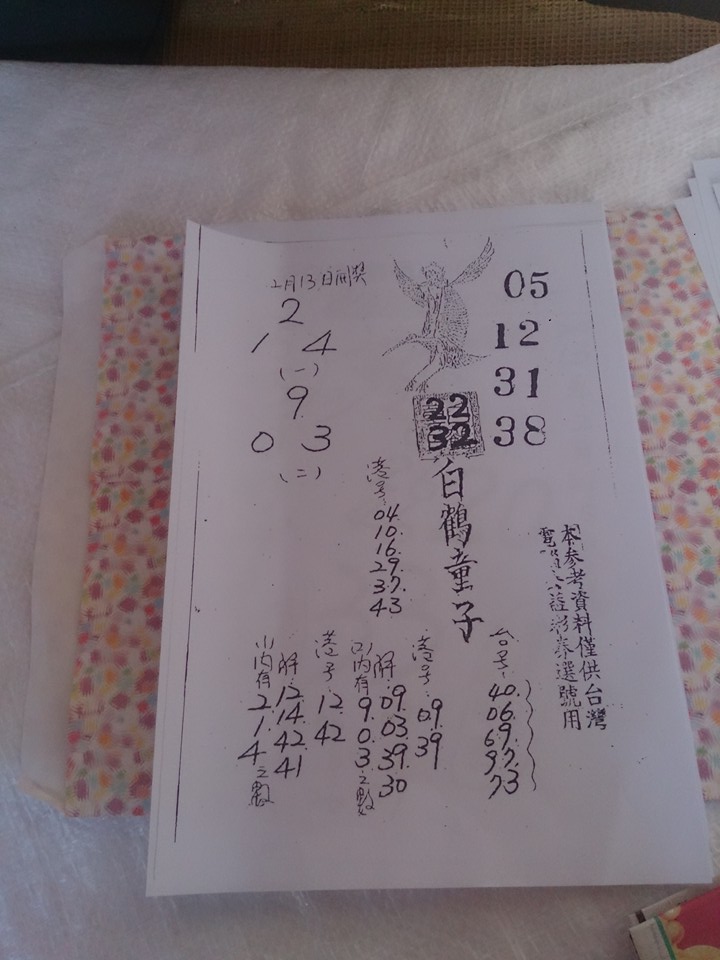 2月13日開獎
2
1 4
(一)
9
0 3
(二)
05
12
31
38
22
32
白鶴童子
港号:
04.
10.
16.
29.
37.
43
本參考資料僅供台灣
電
彩券選號用
台号:
40.
06.
69.
97.
73
港号:
09.
39
(2)內有
9.
0.
3之數
解:
09.
03.
39.
30
港号:
12.
42
(1)內有
2.
1.
4之數
解:
12.
14.
42.
41